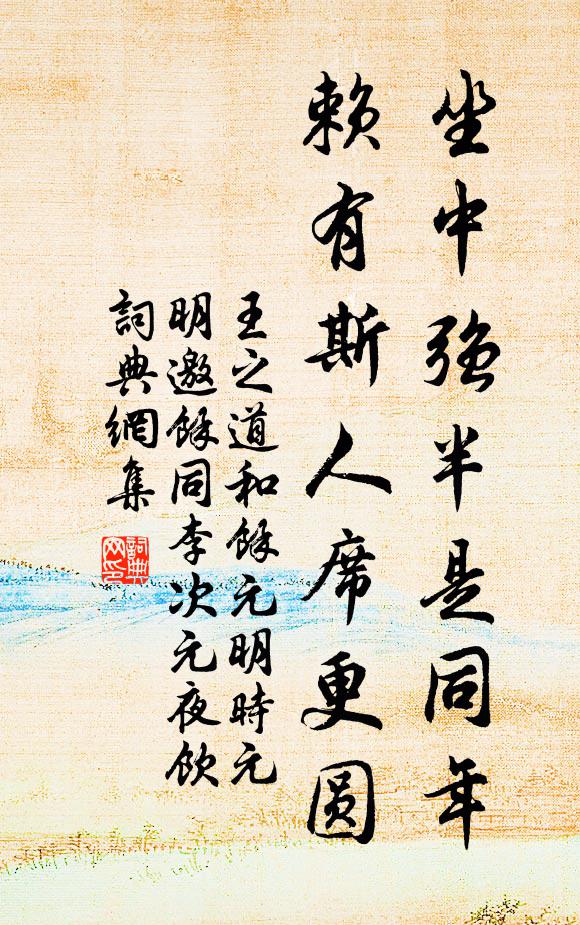 坐中強半是同年
賴有斯人席更圓
王之道和餘元明時元
明邀餘同李次元夜飲
詞典網集
詞典网印